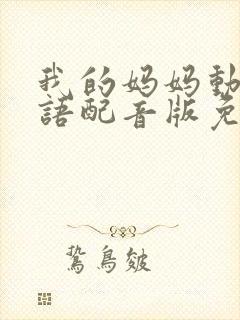 我的妈妈動
語配音版免
鷙鳥皴